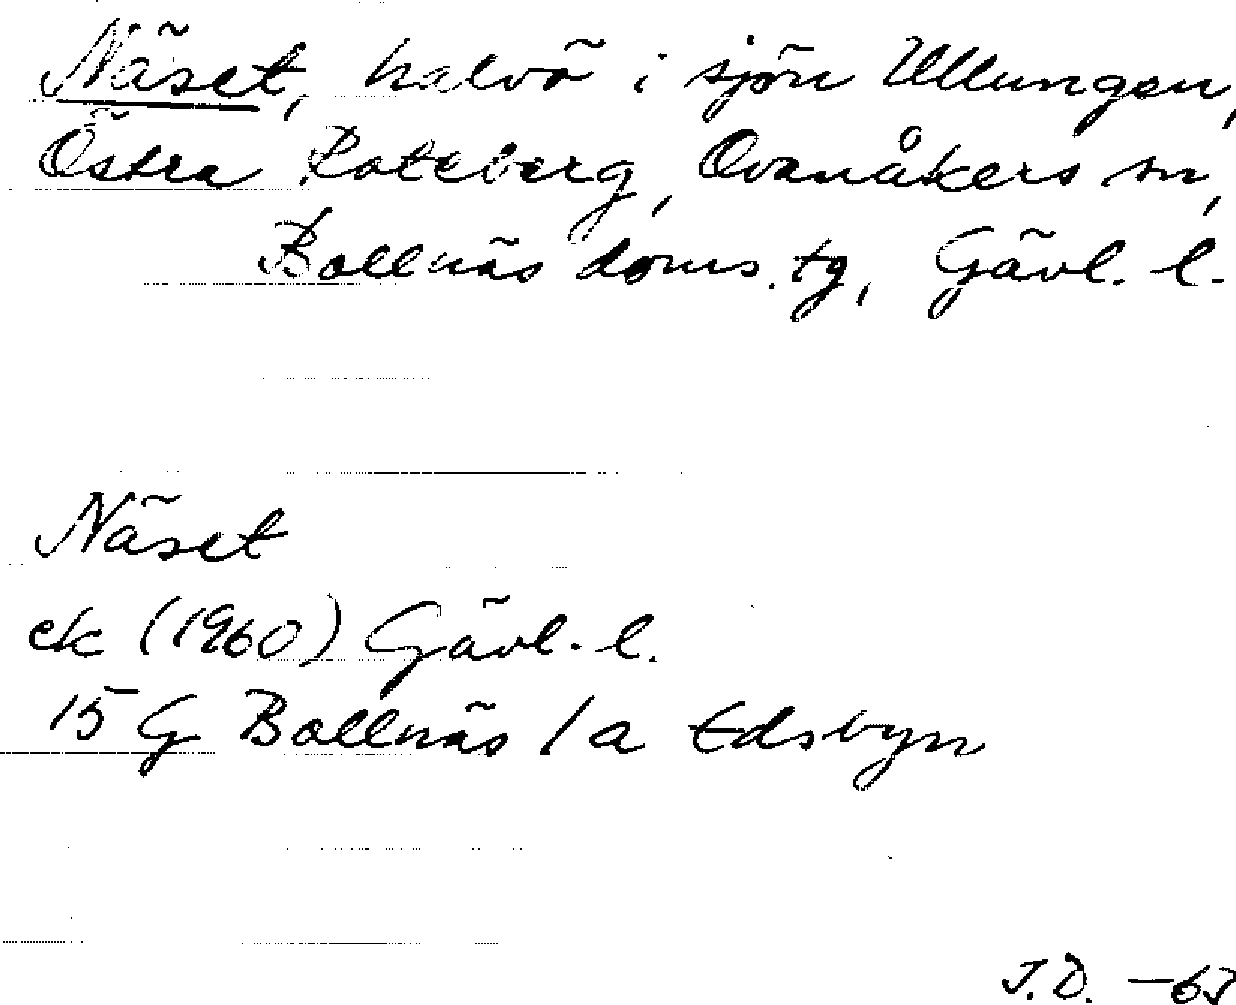 Näset, halvö i sjön Ullungen,
Östra Roteberg, Ovanåkers sn,
Bollnäs doms. tg, Gävl. l.
Näset
ek (1960) Gävl. l.
15 G Bollnäs 1a Edsbyn
J.D. -63